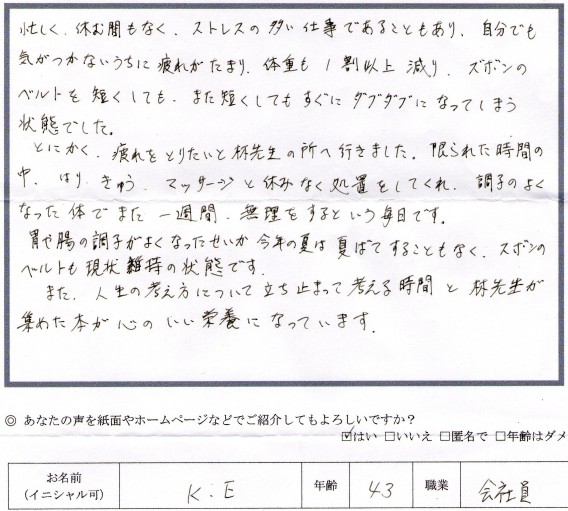 忙しく、休む間もなく、ストレスの多い仕事であることもあり、自分でも
気がつかないうちに疲れがたまり、体重も1割以上減り、ズボンの
ベルトを短くしても、また短くしてもすぐにダブダブになってしまう
状態でした。
とにかく、疲れをとりたいと林先生の所へ行きました。限られた時間の
中、はり、きゅう、マッサージと休みなく処置をしてくれ、調子のよく
なった体でまた一週間、無理をするという毎日です。
胃や腸の調子がよくなったせいか今年の夏は夏ばてすることもなく、ズボンの
ベルトも現状維持の状態です。
また、人生の考え方について立ち止まって考える時間と林先生が
集めた本が心のいい栄養になっています。
◎ あなたの声を紙面やホームページなどでご紹介してもよろしいですか?
☑はい □いいえ □匿名で □年齢はダメ
お名前 K.E 年齢 43 職業 会社員
(イニシャル可)